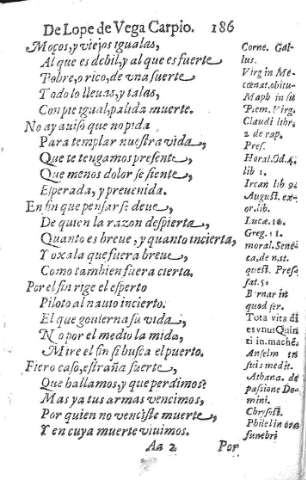 De Lope de Vega Carpio. 186
Moços, y viejos igualas,
Al que es debil, y al que es fuerte
Pobre, o rico, de vna suerte
Todo lo lleuas, y talas,
Con pie igual, palida muerte.
No ay auiso que no pida
Para templar nuestra vida,
Que te tengamos presente,
Que menos dolor se siente,
Esperada, y preuenida.
En fin que pensar se deue,
De quien la razon despierta,
Quanto es breue, y quanto incierta,
Y oxala que fuera breue,
Como tambien fuera cierta.
Por el fin rige el esperto
Piloto al nauto incierto.
El que gouierna su vida,
No por el medio la mida,
Mire el fin si busca el puerto.
Fiero caso, estraña suerte,
Que hallamos, y que perdimos?
Mas ya tus armas vencimos,
Por quien no venciste muerte,
Y en cuya muerte viuimos.
Aa 2 Por
Corne. Gal-
lus.
Virg in Me-
cœnat. obitu-
Maph in su
P. em. Virg.
Claudi libr.
2 de rap.
Pros.
Horat. Od. 4.
lib 1.
Ircan lib 9.
August. ex-
or. lib.
Luca. 10.
Greg. 11.
moral. Sene-
ca, de nat.
quest. Pref.
fat. 5.
Bernar in
quod ser.
Tota vita di
es vnus Quin
ti in mach.
Anselm in
suis medit.
Athana. de
passione Do-
mini.
Chrysost.
Phile in ora
funebri